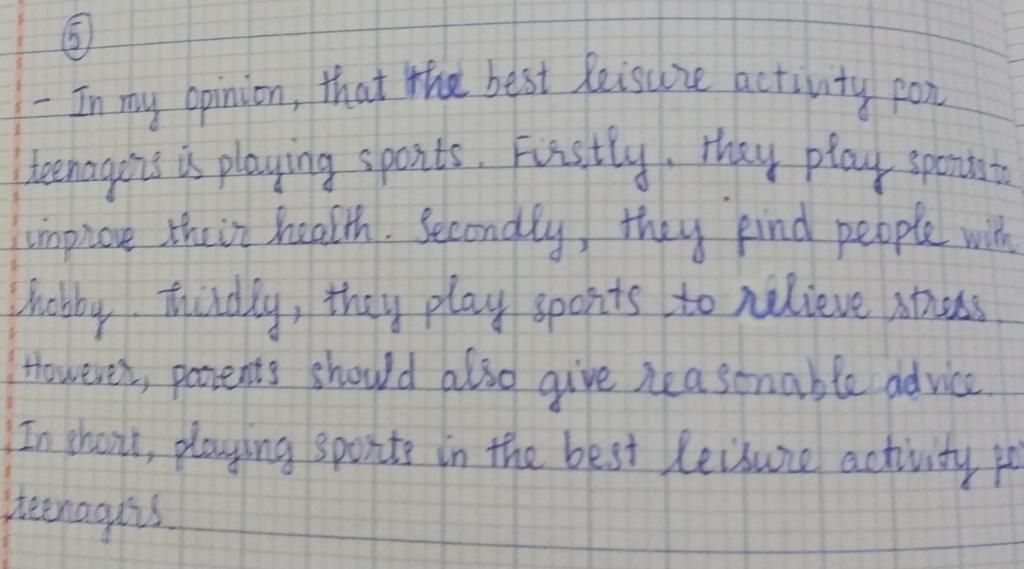 5
- In my opinion, that the best leisure activity for
teenagers is playing sports. Firstly, they play sports to
improve their health. Secondly, they find people with
hobby. Thirdly, they play sports to relieve stress
However, parents should also give reasonable advice.
In short, playing sports in the best leisure activity fo
teenagers